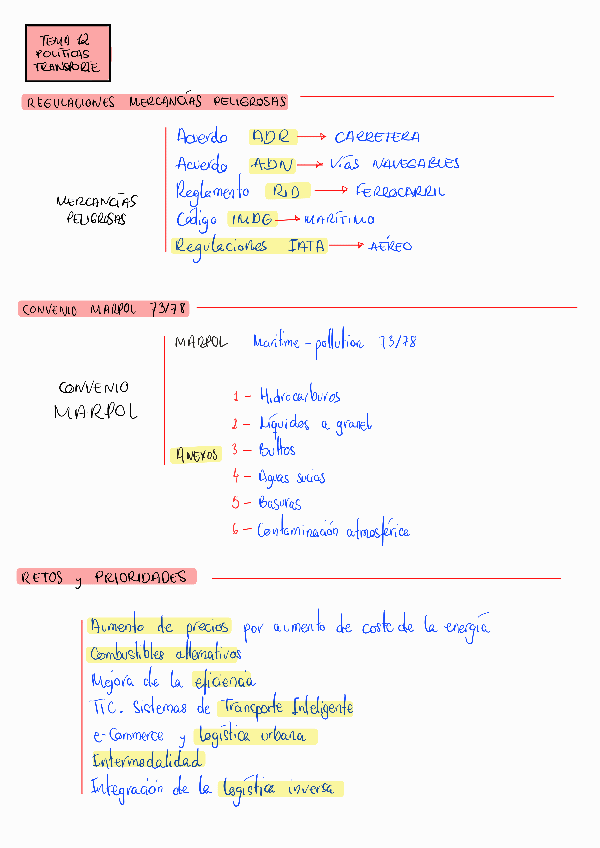 TEMA 12
POLÍTICAS
TRANSPORTE
REGULACIONES MERCANCÍAS PELIGROSAS
MERCANCÍAS
PELIGROSAS
Acuerdo ADR → CARRETERA
Acuerdo ADN → VÍAS NAVEGABLES
Reglamento RID → FERROCARRIL
Código IMDG → MARÍTIMO
Regulaciones IATA → AÉREO
CONVENIO MARPOL 73/78
CONVENIO
MARPOL
MARPOL Maritime-pollution 73/78
ANEXOS
1 - Hidrocarburos
2 - Líquidos a granel
3 - Bultos
4 - Aguas sucias
5 - Basuras
6 - Contaminación atmosférica
RETOS y PRIORIDADES
Aumento de precios por aumento de coste de la energía
Combustibles alternativos
Mejora de la eficiencia
TIC. Sistemas de Transporte Inteligente
e-Commerce y logística urbana
Intermodalidad
Integración de la logística inversa